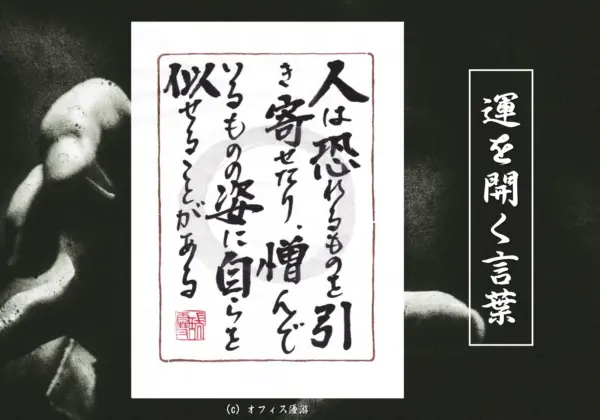 運を開く言葉
人は恐れるものを引
き寄せたり、憎んで
いるものの姿に自らを
似せることがある
(C) オフィス優游